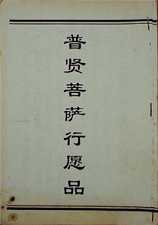 普贤菩萨行愿品